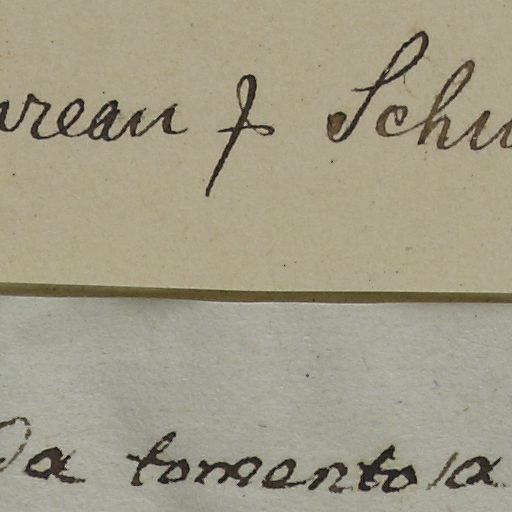 ureau f. Schu
da tomentosa